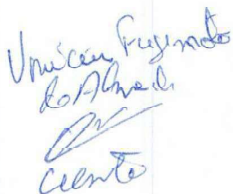 Vinícius Fugimoto
de Almeida
ciente